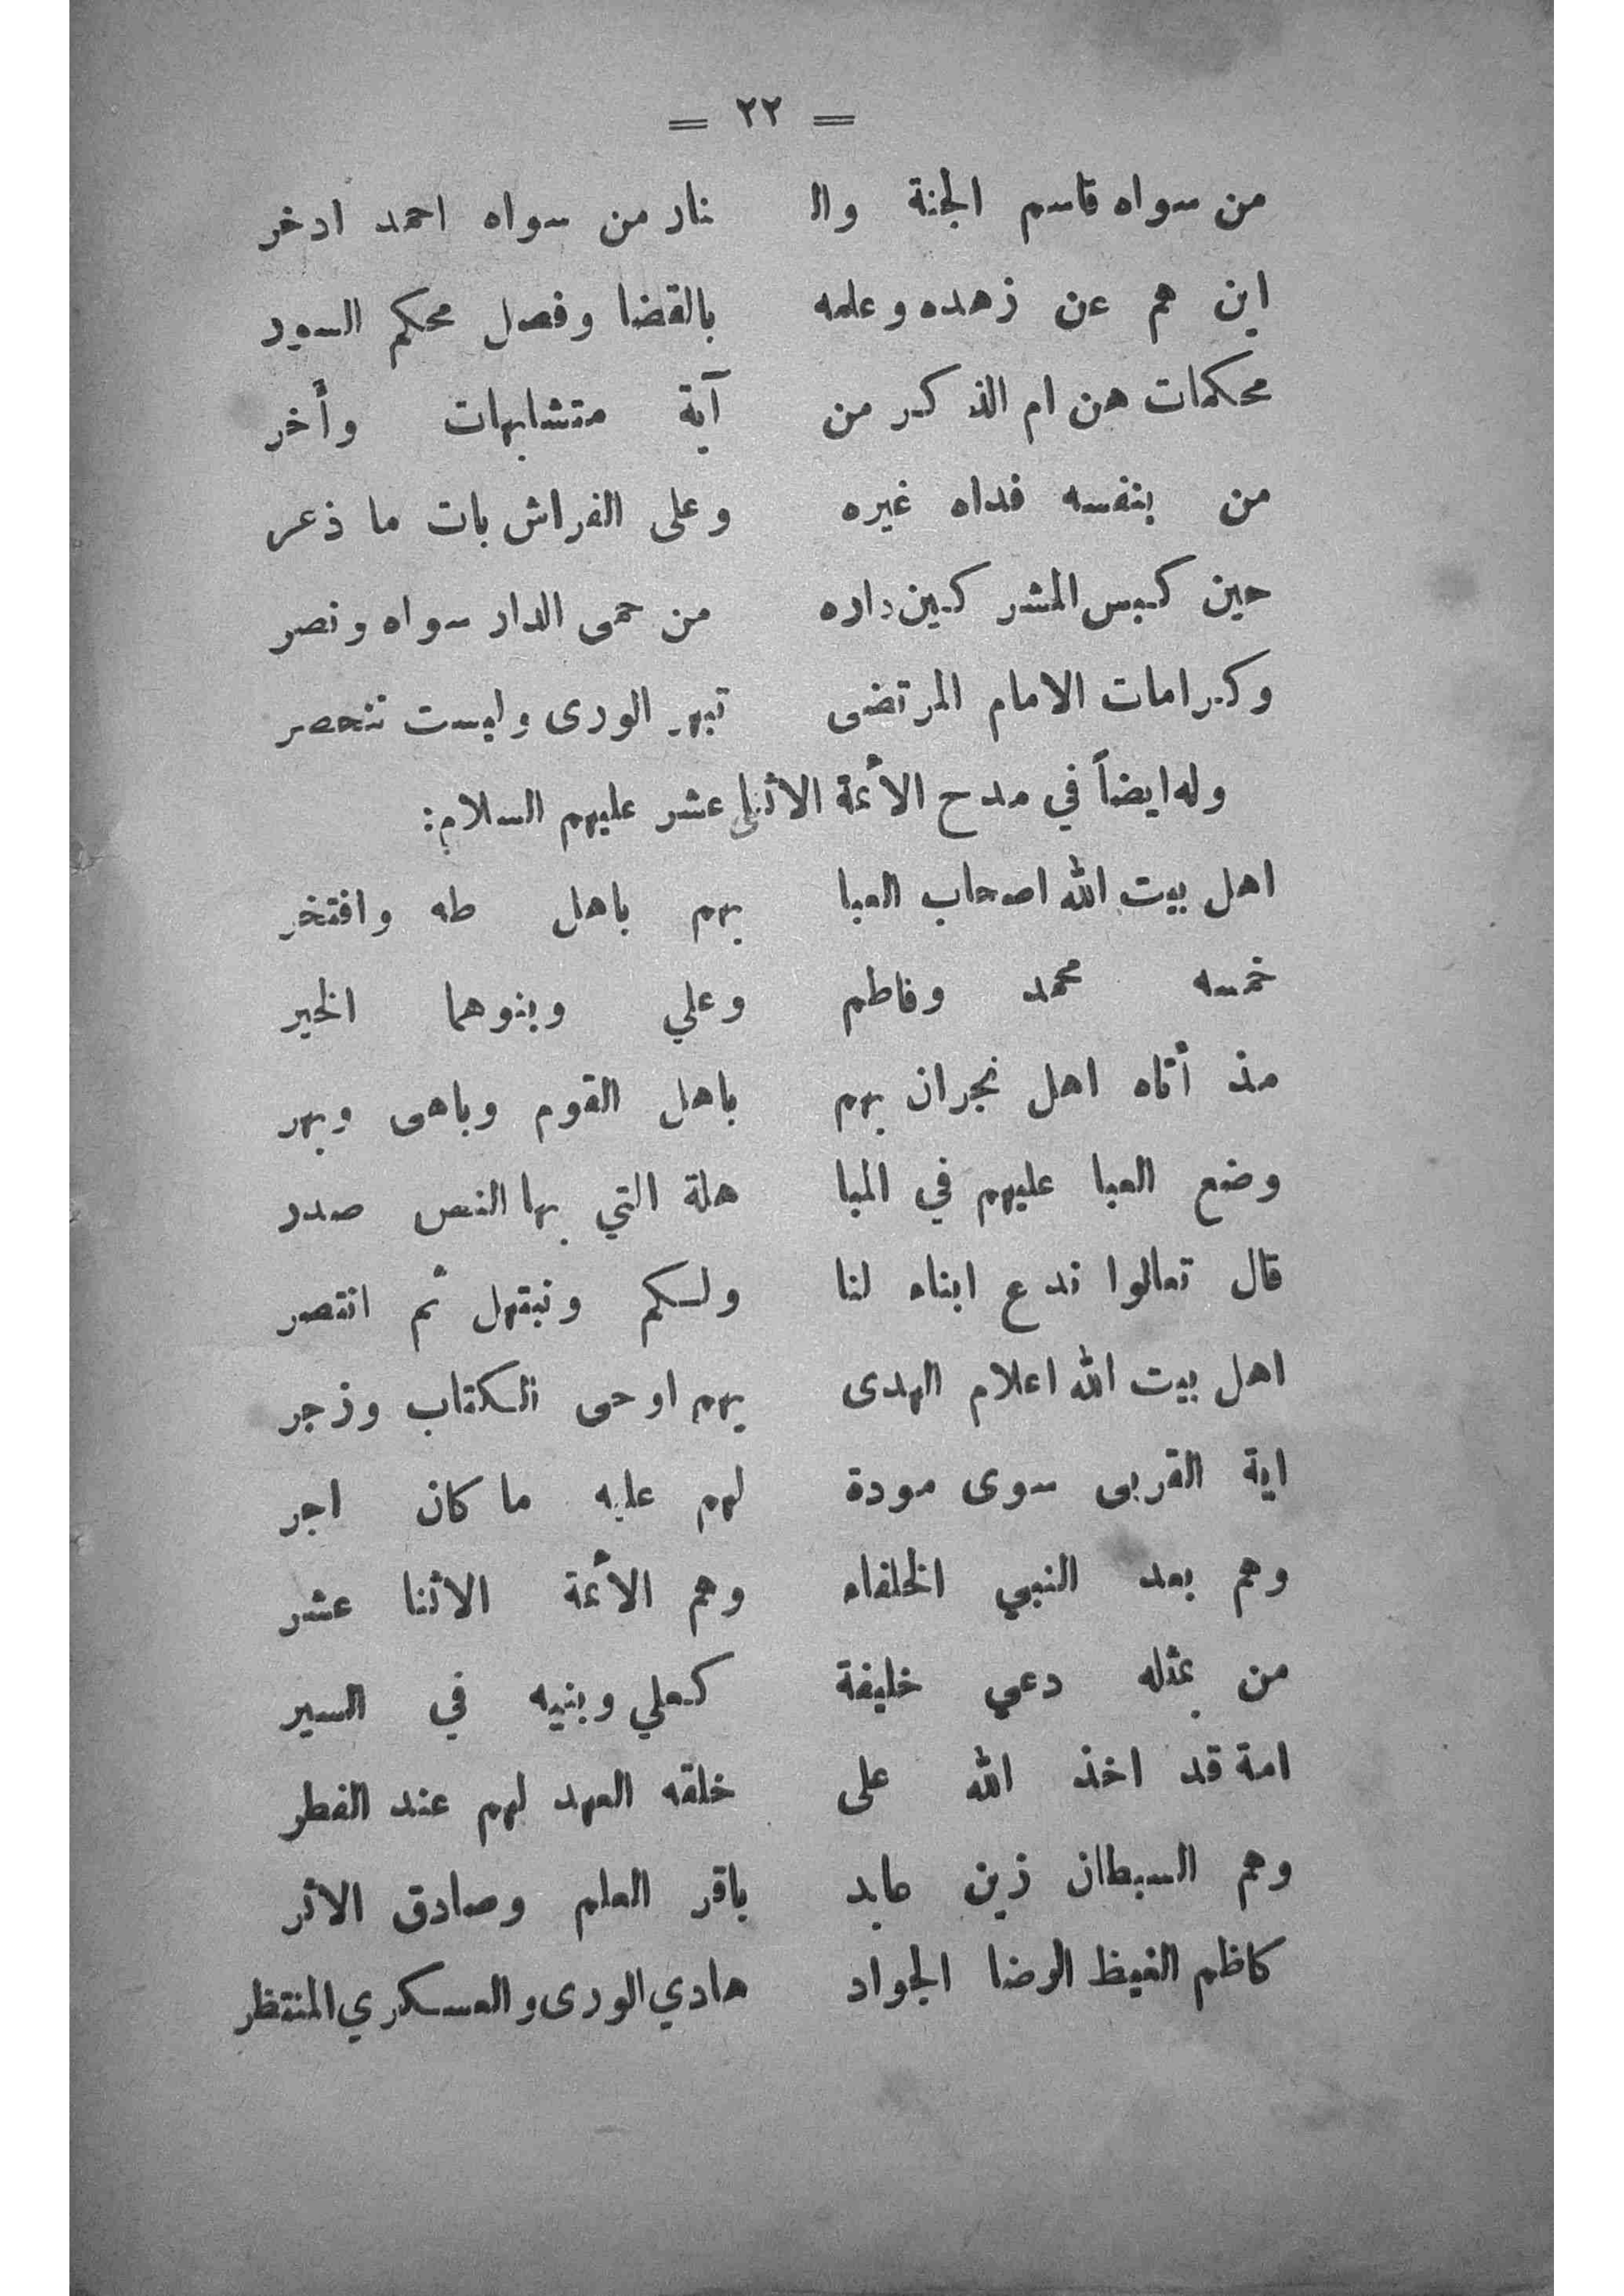 = ٢٢ =
من سواه قاسم الجنة وال نار من سواه احمد ادخر
اين هم عن زهده وعلمه بالقضا وفصل محكم السور
محكمات هن ام الذكر من آية متشابهات وأخر
من بنفسه فداه غيره وعلى الفراش بات ما ذعر
حين كبس المشركين داره من حمى الدار سواه ونصر
وكرامات الامام المرتضى تبهر الورى وليست تنحصر
وله ايضاً في مدح الأئمة الاثنى عشر عليهم السلام:
اهل بيت الله اصحاب العبا بهم باهل طه وافتخر
خمسه محمد وفاطم وعلي وبنوهما الخير
مذ أتاه اهل نجران بهم باهل القوم وباهى وبهر
وضع العبا عليهم في المبا هلة التي بها النص صدر
قال تعالوا ندع ابناء لنا ولكم ونبتهل ثم انتصر
اهل بيت الله اعلام الهدى بهم اوحى الكتاب وزجر
اية القربى سوى مودة لهم عليه ما كان اجر
وهم بعد النبي الخلفاء وهم الأئمة الاثنا عشر
من بمثله دعي خليفة كعلي وبنيه في السير
امة قد اخذ الله على خلقه العهد لهم عند الفطر
وهم السبطان زين عابد باقر العلم وصادق الاثر
كاظم الغيظ الرضا الجواد هادي الورى والعسكري المنتظر